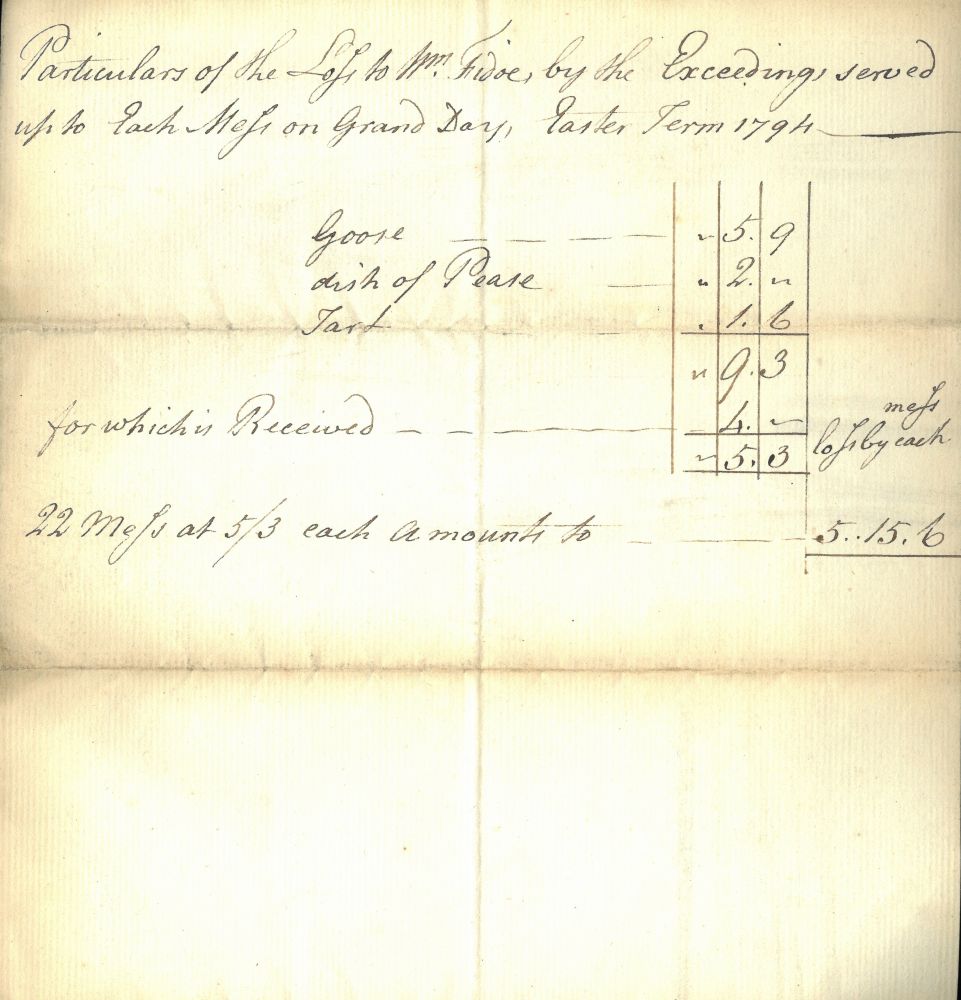 Particulars of the Loſs to Wm. Fidoe, by the Exceedings served
up to Each Meſs on Grand Day, Easter Term 1794
Goose — — — " 5. 9
dish of Pease — " 2. "
Tart — " 1. 6
" 9. 3
for which is Received — — — — 4. "
" 5. 3 loſs by each meſs
22 Meſs at 5/3 each amounts to — — — 5..15.6